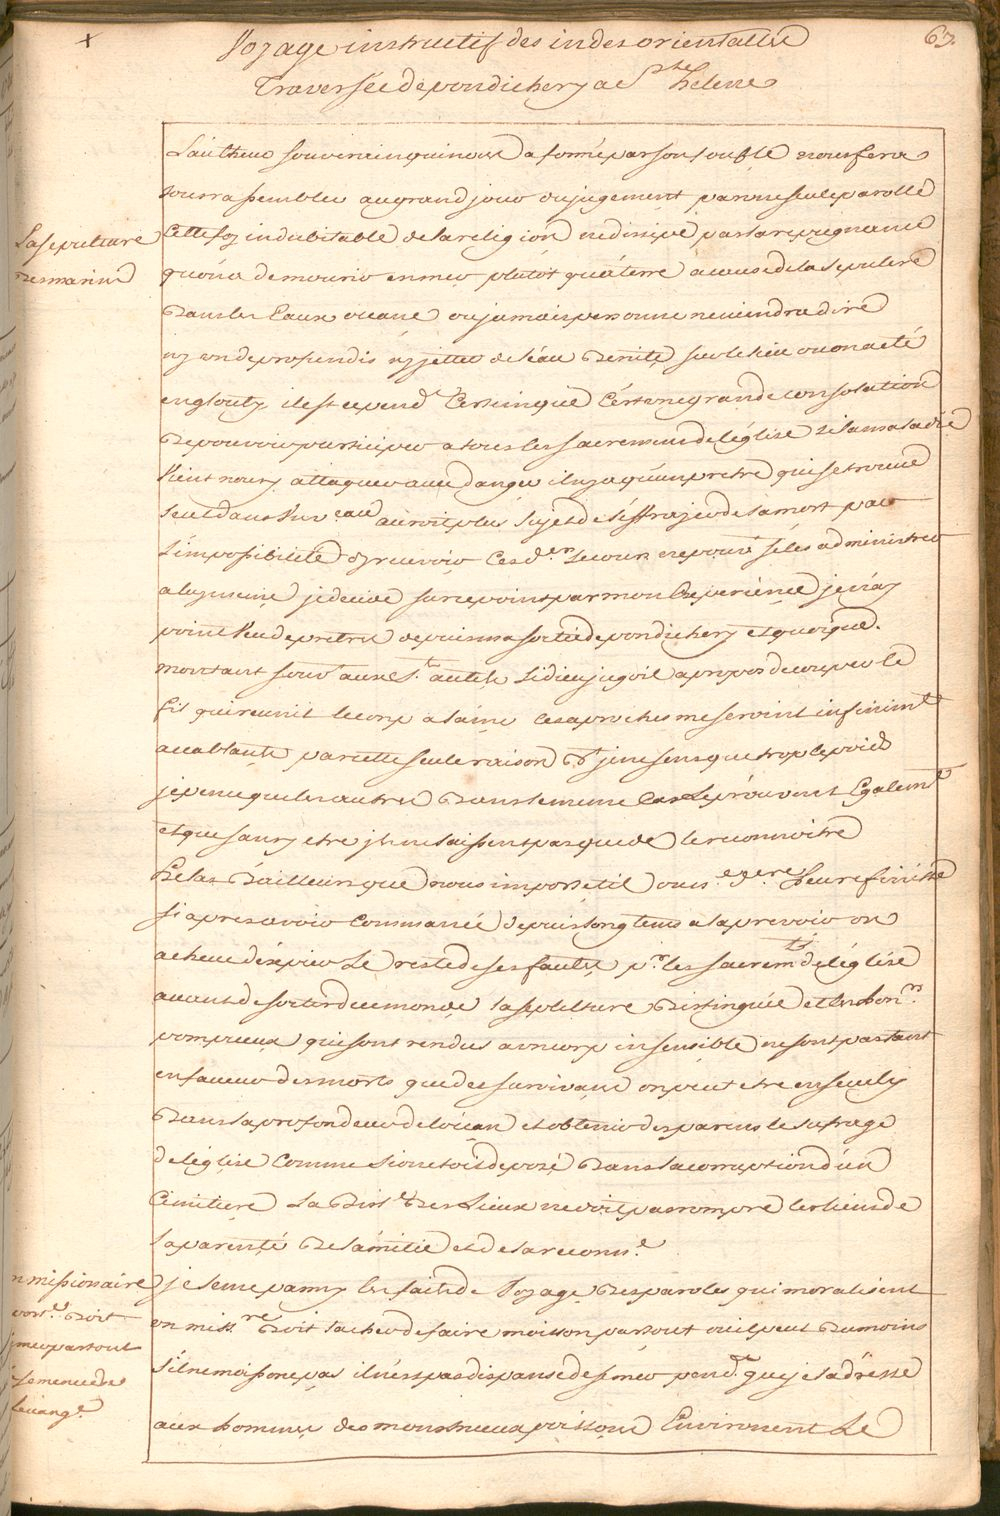 67.
Voyage instructif des indes orientalles
Traversée de pondichery a Ste helene
Lautheur souverain qui nous a formé par son soufle nous fera
tous rassembler au grand jour du jugement par une seule parolle
La sepulture
des marins
cette foy indubitable de la religion ne dissipe pas la repugnance
qu'on a de mourir en mer plutôt qu'a terre a cause de la sepulture
dans les Eaux ou jamais personne ne viendra dire
ny un de profundis ny jetter de l'eau benite sur le lieu ou on a été
englouty il est cepend.t certain que c'est une grande consolation
de pouvoir participer a tous les sacremens de l'église si la maladie
vient nous attaquer avec danger il n'y a qu'un pretre qui se trouve
seul dans un v.eau auroit plus sujet de s'effrayer de la mort par
l'impossibilité d'y recevoir ces d.ers secours ne pouvant se les administrer
a luy meme je decide sur ce point par mon experience je n'ay
point veu de pretre depuis ma sortie de pondichery et quoique
montant souv.t aux S.ts autels si dieu jugoit a propos de couper le
fil qui reunit le corps a l'ame ces aproches me seroint infinim.t
accablante par cette seule raison d.t je ne sens que trop le poids
je pense que les autres dans le meme cas l'eprouvent Egalem.t
et que sans y etre ils ne laissent pas que de le reconnoitre
helas d'ailleurs que nous importe til ou n.e c.ere heure finisse
si apres avoir commancé depuis longtems a la prevoir on
acheve d'expier le reste de ses fautes p.r les sacrem.ts de l'église
avant de sortir de ce monde la sepulture distinguée et les hon.rs
pompeux qui sont rendus a un corps insensible ne sont pas tant
en faveur des morts que des survivans on peut etre ensevely
dans la profondeur de l'ocean et obtenir des parens le sufrage
de l'église comme si on etoit deposé dans la corruption d'un
cimitiere La dist.ce des lieux ne doit pas rompre les liens de
la parenté de l'amitié et de la reconn.e
n missionaire
doit
mer partout
semence de
levang.e
je seme parmy les faits de voyage des paroles qui moralisent
un miss.re doit tacher de faire moisson partout ou il peut du moins
s'il ne moissone pas il n'est pas dispansé de semer pend.t que je l'adresse
aux hommes des monstrueux poissons Environnent Le